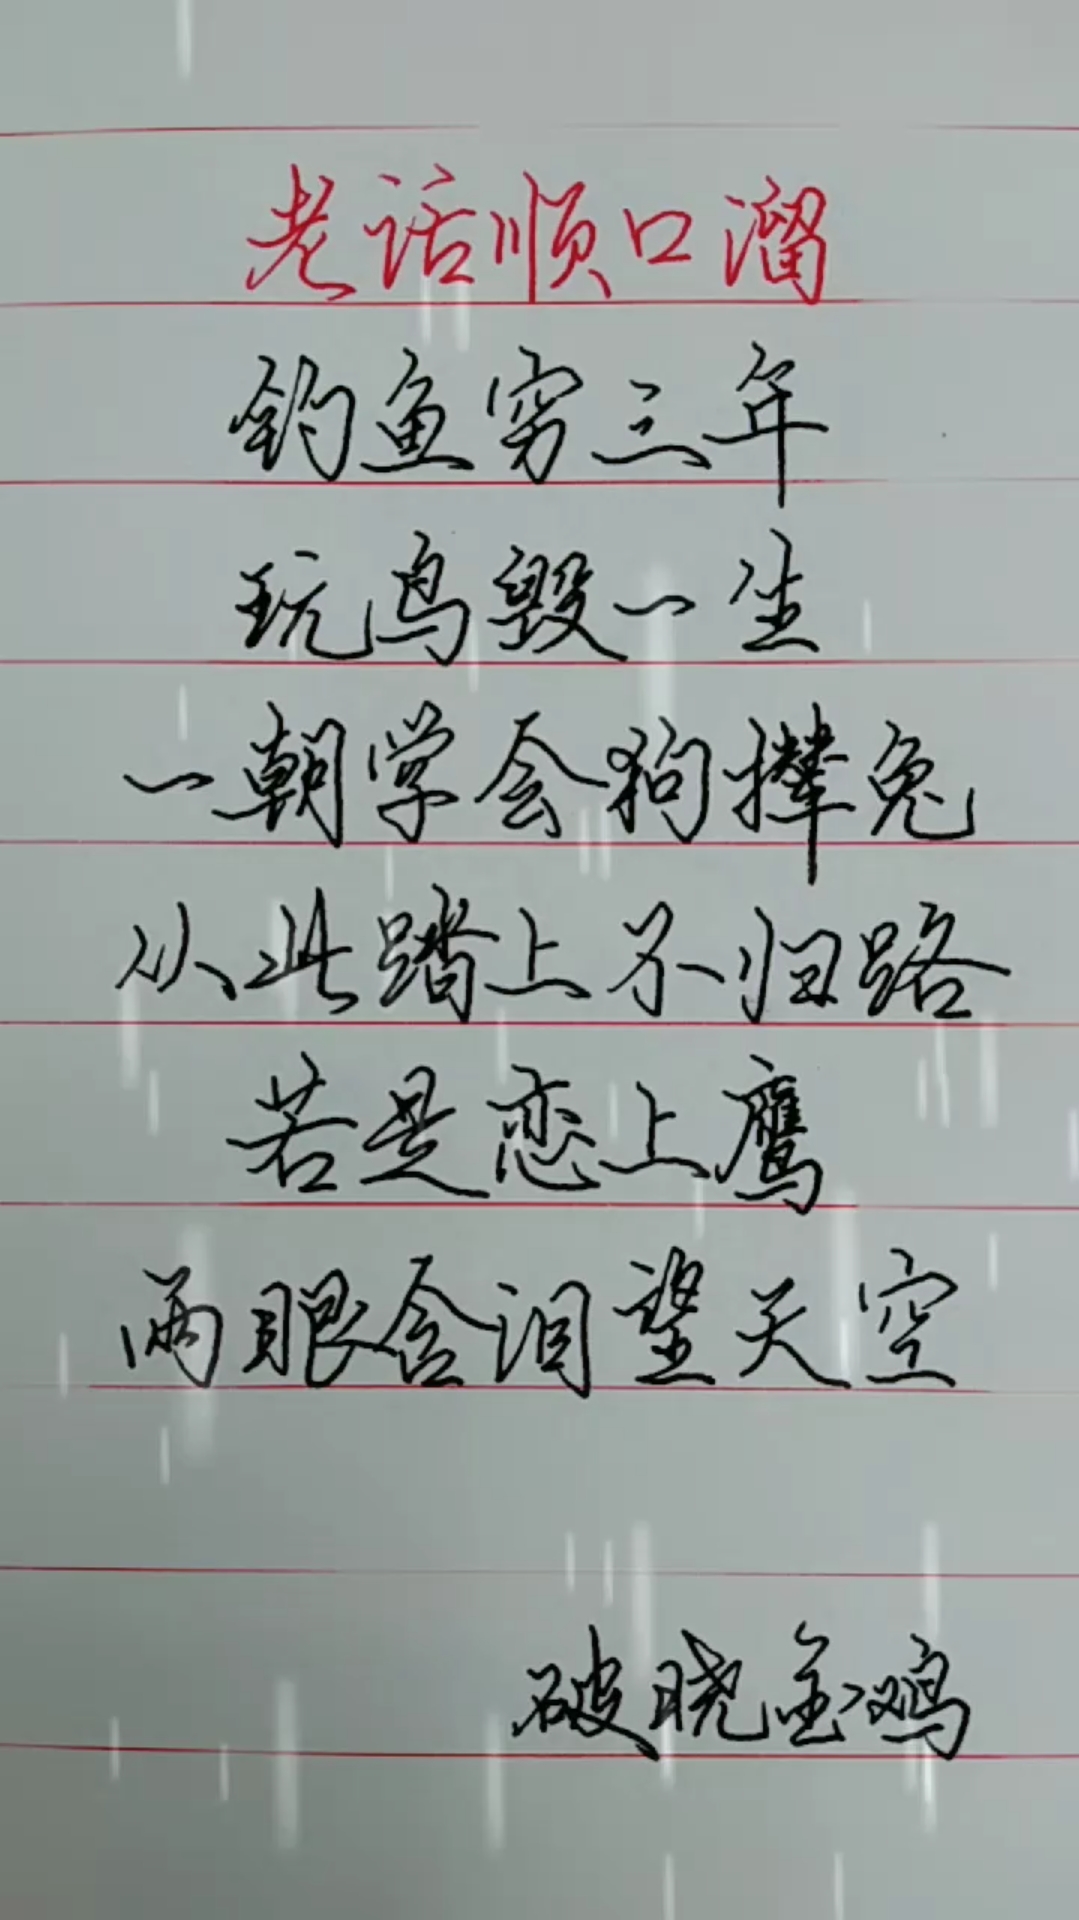 老话顺口溜
钓鱼穷三年
玩鸟毁一生
一朝学会狗撵兔
从此踏上不归路
若是恋上鹰
两眼含泪望天空
破晓金鸡